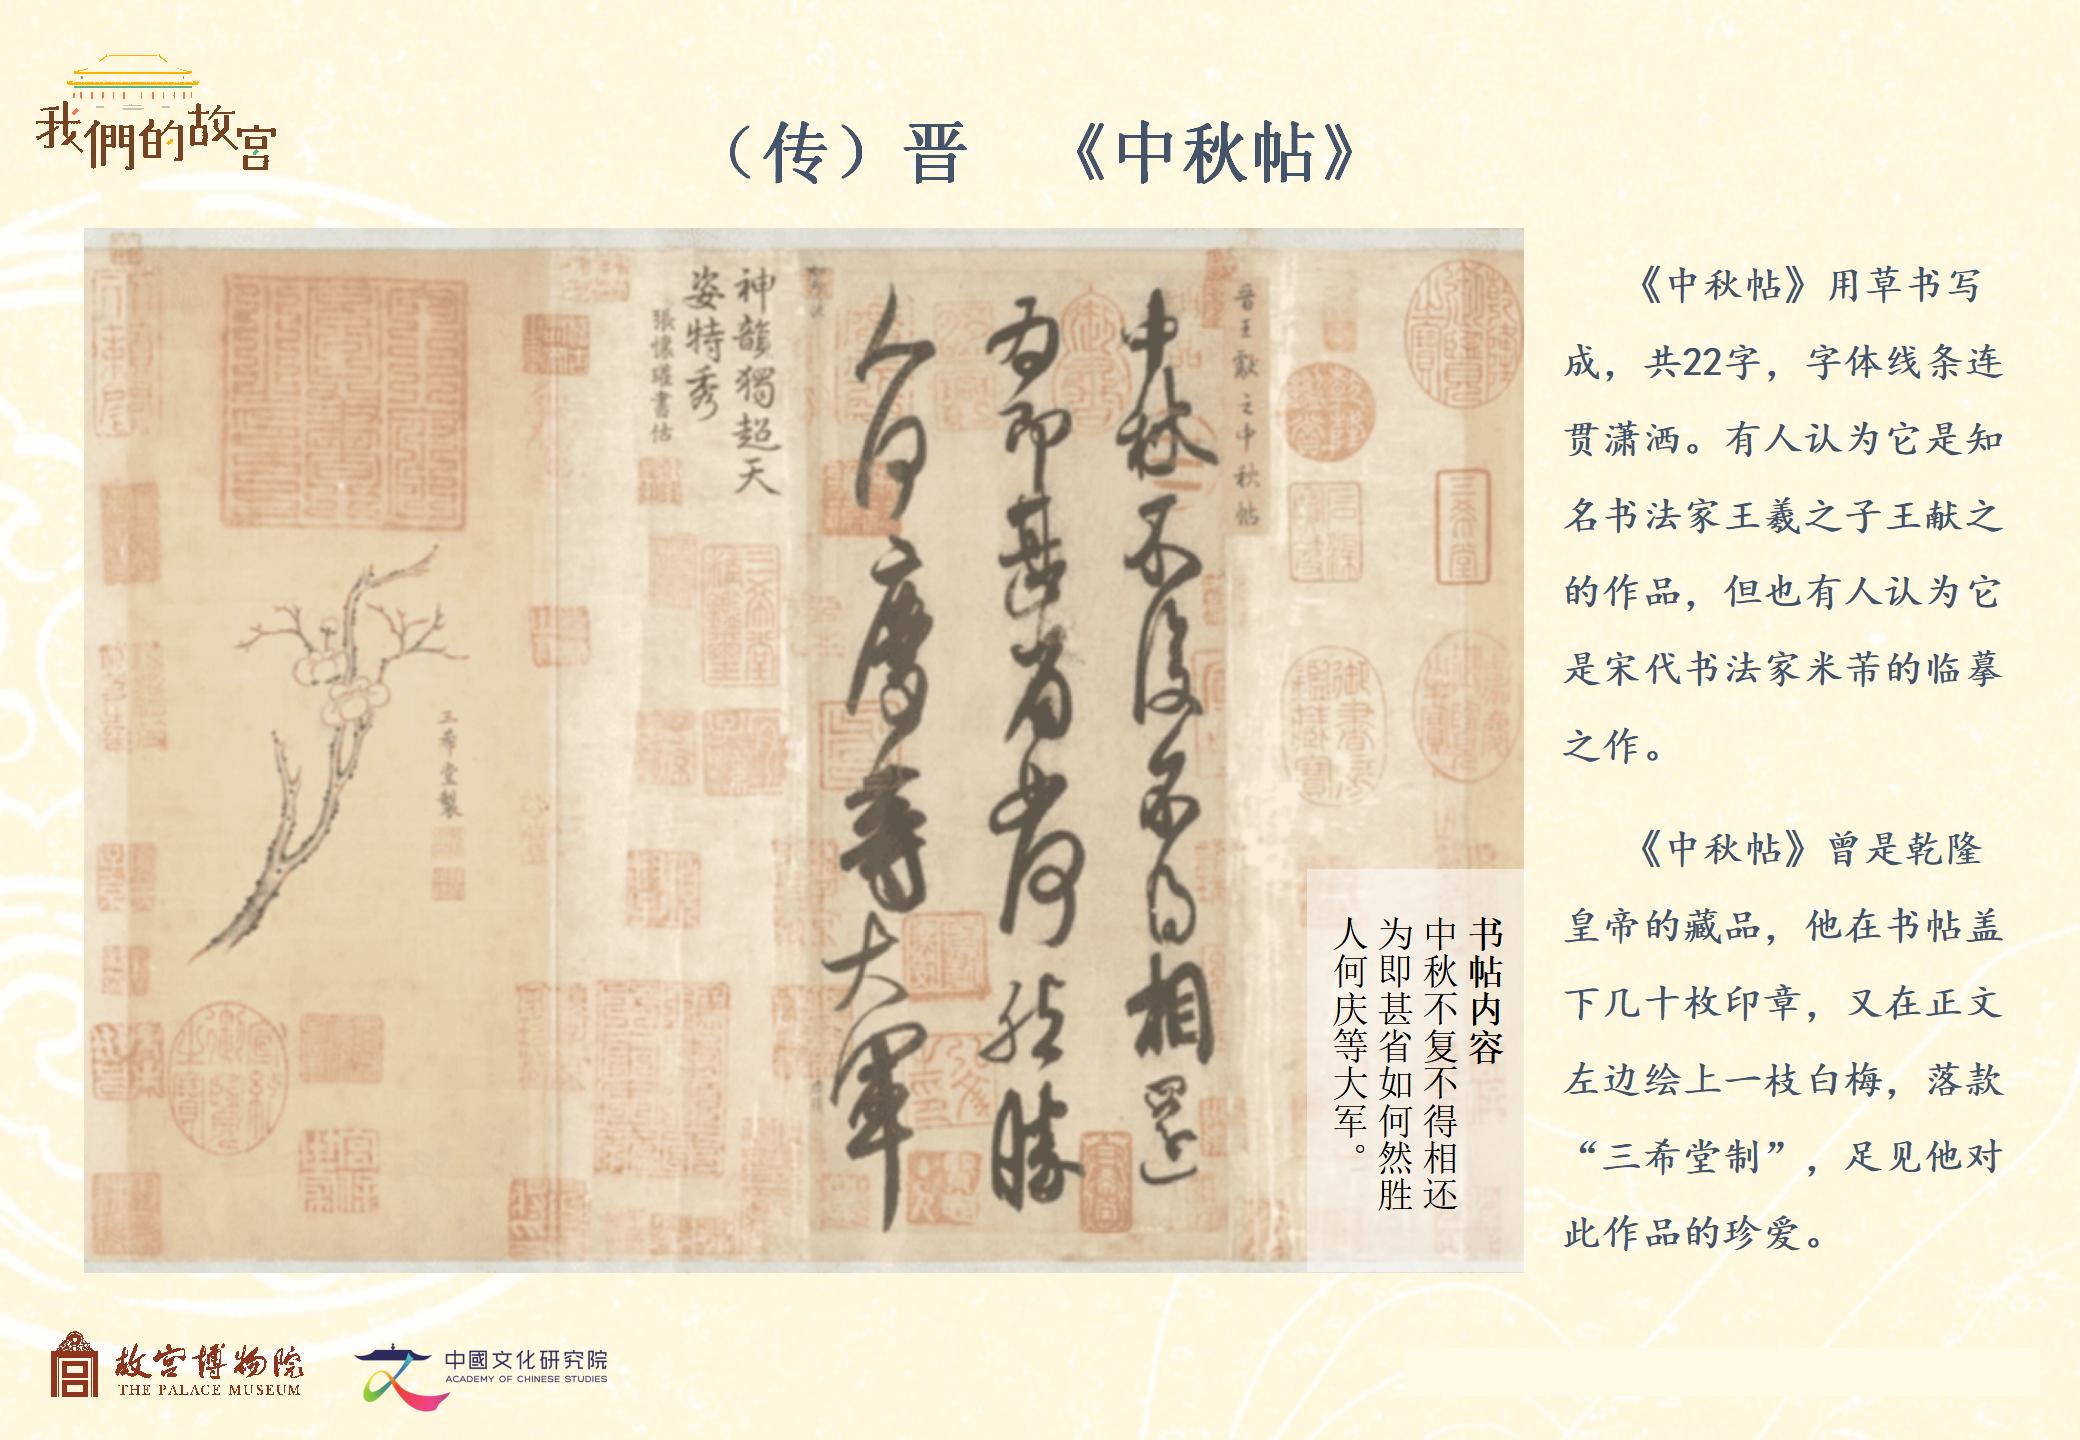 我們的故宮
（传）晋 《中秋帖》
晋王獻之中秋帖
中秋不復不得相還
為即甚省如何然勝
人何慶等大軍
神韻獨超天
姿特秀
張懷瓘書估
三希堂製
三希堂
书帖内容
中秋不复不得相还
为即甚省如何然胜
人何庆等大军。
《中秋帖》用草书写
成，共22字，字体线条连
贯潇洒。有人认为它是知
名书法家王羲之子王献之
的作品，但也有人认为它
是宋代书法家米芾的临摹
之作。
《中秋帖》曾是乾隆
皇帝的藏品，他在书帖盖
下几十枚印章，又在正文
左边绘上一枝白梅，落款
“三希堂制”，足见他对
此作品的珍爱。
故宫博物院
THE PALACE MUSEUM
中國文化研究院
ACADEMY OF CHINESE STUDIES